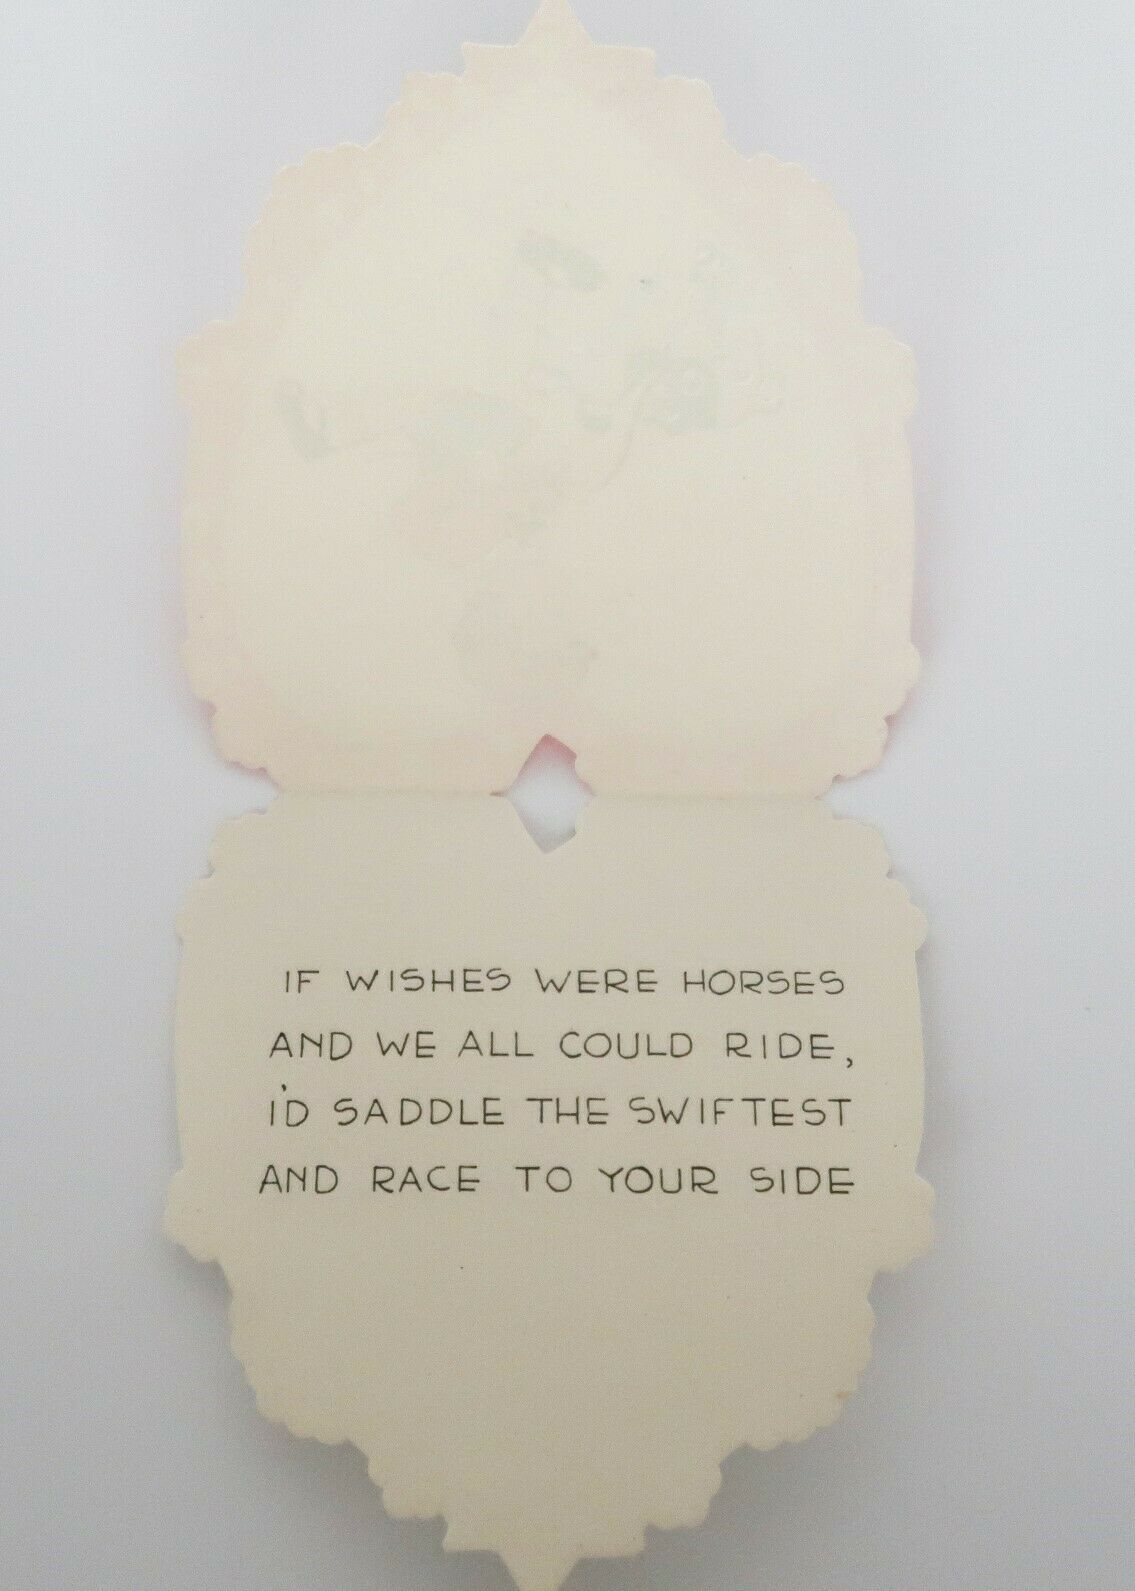 IF WISHES WERE HORSES
AND WE ALL COULD RIDE,
I'D SADDLE THE SWIFTEST
AND RACE TO YOUR SIDE